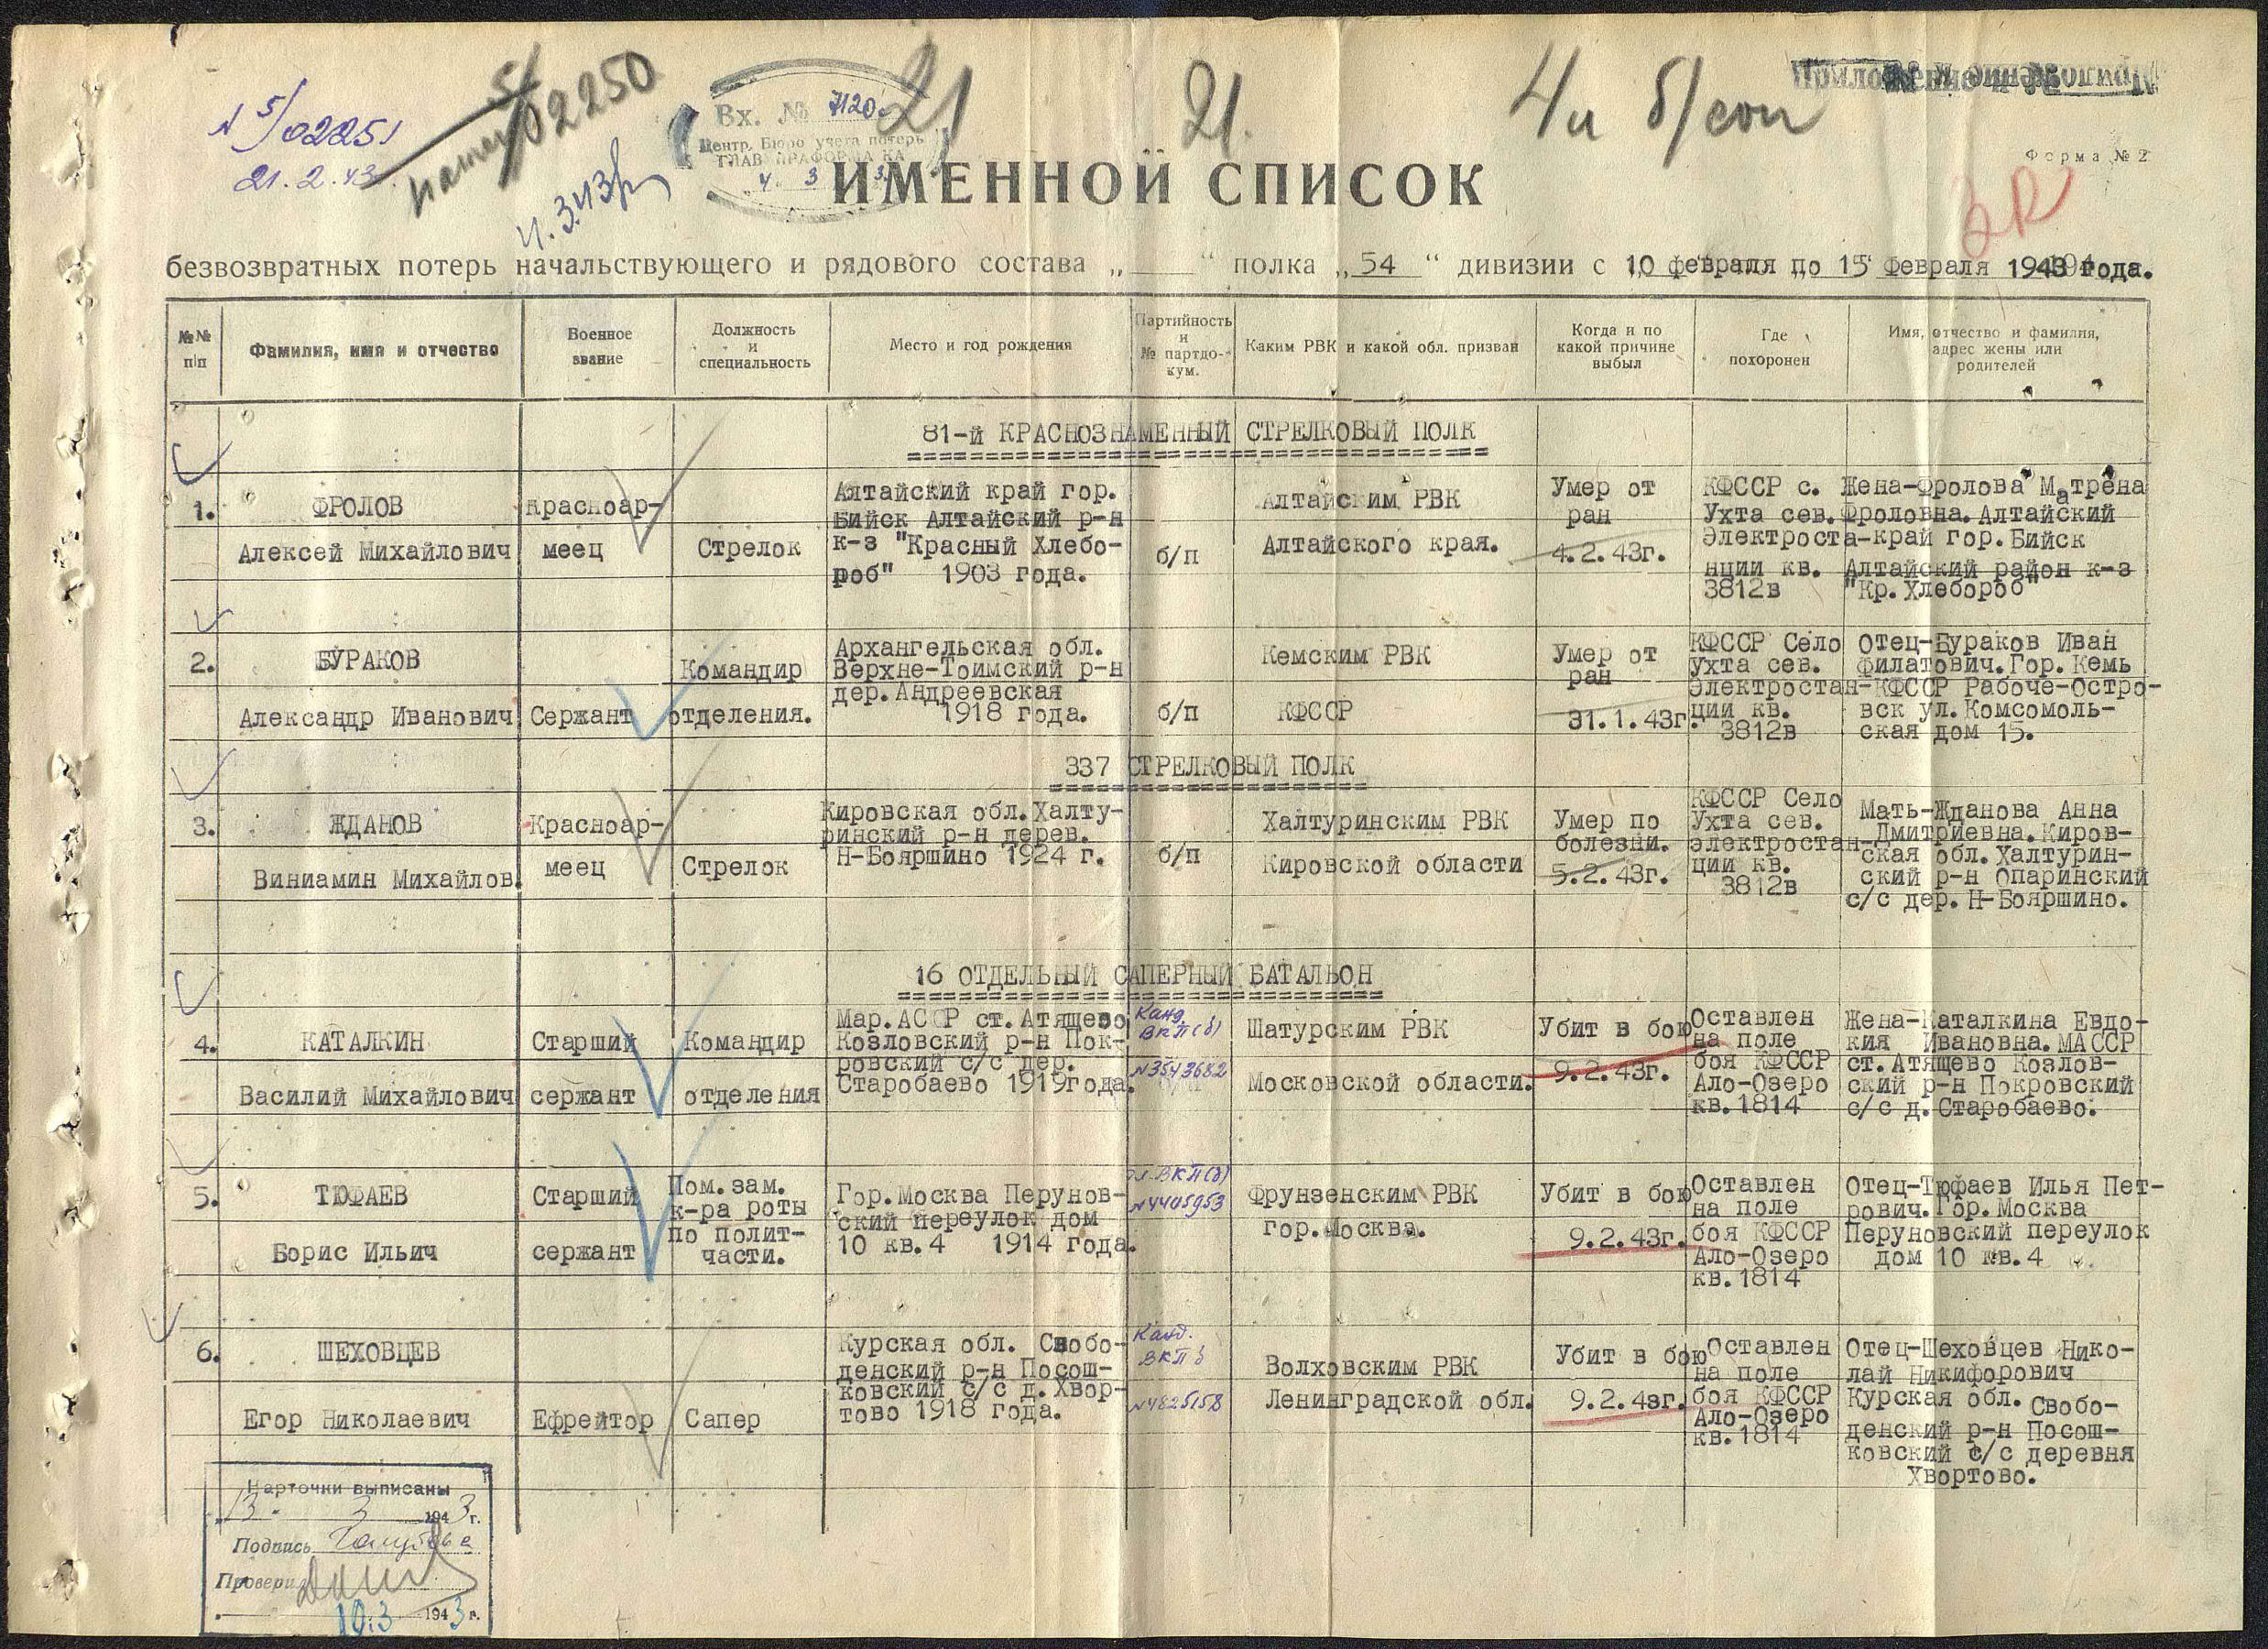 N 5/02251
21.2.43.
5/
02250
4.3.43
Вх. № 7120
Центр. Бюро учета потерь
ГЛАВ УПРАФОРМА КА
4. 3 3.
21
21.
4
Приложение
Форма № 2
ИМЕННОЙ СПИСОК
безвозвратных потерь начальствующего и рядового состава „ “ полка „54“ дивизии с 10 февраля по 15 февраля 1943 года.
№№ п/п
Фамилия, имя и отчество
Военное звание
Должность и специальность
Место и год рождения
Партийность и № партдо-кум.
Каким РВК и какой обл. призван
Когда и по какой причине выбыл
Где похоронен
Имя, отчество и фамилия, адрес жены или родителей
81-й КРАСНОЗНАМЕННЫЙ СТРЕЛКОВЫЙ ПОЛК
1.
ФРОЛОВ
Алексей Михайлович
Красноар-
меец
Стрелок
Алтайский край гор.
Бийск Алтайский р-н
к-з "Красный Хлебо-
роб" 1903 года.
б/п
Алтайским РВК
Алтайского края.
Умер от
ран
4.2.43г.
КФССР с.
Ухта сев.
Электроста-
нции кв.
3812в
Жена-Фролова Матрена
Фроловна. Алтайский
край гор. Бийск
Алтайский район к-з
"Кр. Хлебороб"
2.
БУРАКОВ
Александр Иванович
Сержант
Командир
отделения.
Архангельская обл.
Верхне-Тоимский р-н
дер. Андреевская
1918 года.
б/п
Кемским РВК
КФССР
Умер от
ран
31.1.43г.
КФССР Село
Ухта сев.
электростан-
ции кв.
3812в
Отец-Бураков Иван
Филатович. Гор. Кемь
КФССР Рабоче-Остро-
вск ул. Комсомоль-
ская дом 15.
337 СТРЕЛКОВЫЙ ПОЛК
3.
ЖДАНОВ
Виниамин Михайлов.
Красноар-
меец
Стрелок
Кировская обл. Халту-
ринский р-н дерев.
Н-Бояршино 1924 г.
б/п
Халтуринским РВК
Кировской области
Умер по
болезни.
5.2.43г.
КФССР Село
Ухта сев.
электростан-
ции кв.
3812в
Мать-Жданова Анна
Дмитриевна. Киров-
ская обл. Халтурин-
ский р-н Опаринский
с/с дер. Н-Бояршино.
16 ОТДЕЛЬНЫЙ САПЕРНЫЙ БАТАЛЬОН
4.
КАТАЛКИН
Василий Михайлович
Старший
сержант
Командир
отделения
Мар. АССР ст. Атящево
Козловский р-н Пок-
ровский с/с дер.
Старобаево 1919 года.
Канд.
ВКП(б)
N3543682
Шатурским РВК
Московской области.
Убит в бою
9.2.43г.
Оставлен
на поле
боя КФССР
Ало-Озеро
кв. 1814
Жена-Каталкина Евдо-
кия Ивановна. МАССР
ст. Атящево Козлов-
ский р-н Покровский
с/с д. Старобаево.
5.
ТЮФАЕВ
Борис Ильич
Старший
сержант
Пом. зам.
к-ра роты
по полит-
части.
Гор. Москва Перунов-
ский переулок дом
10 кв. 4 1914 года.
ВКП(б)
N4405953
Фрунзенским РВК
гор. Москва.
Убит в бою
9.2.43г.
Оставлен
на поле
боя КФССР
Ало-Озеро
кв. 1814
Отец-Тюфаев Илья Пет-
рович. Гор. Москва
Перуновский переулок
дом 10 кв. 4
6.
ШЕХОВЦЕВ
Егор Николаевич
Ефрейтор
Сапер
Курская обл. Свобо-
денский р-н Посош-
ковский с/с д. Хвор-
тово 1918 года.
Канд.
ВКПб
N4825158
Волховским РВК
Ленинградской обл.
Убит в бою
9.2.43г.
Оставлен
на поле
боя КФССР
Ало-Озеро
кв. 1814
Отец-Шеховцев Нико-
лай Никифорович
Курская обл. Свобо-
денский р-н Посош-
ковский с/с деревня
Хвортово.
Карточки выписаны
13. 3 1943 г.
Подпись
Проверил
10.3 1943 г.